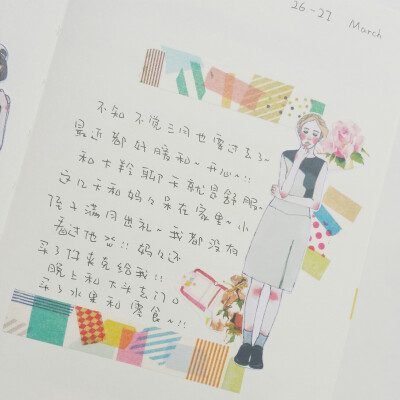 26-27 March
不知不觉三月也要过去了~
最近都好暖和~开心~!!
和大羚聊天就是舒服~
这几天和妈々呆在家里~小
侄子满月出礼~我都没有
看过他!! 妈々还
买了件来克给我!!
晚上和大头去门口
买了水果和零食~!!